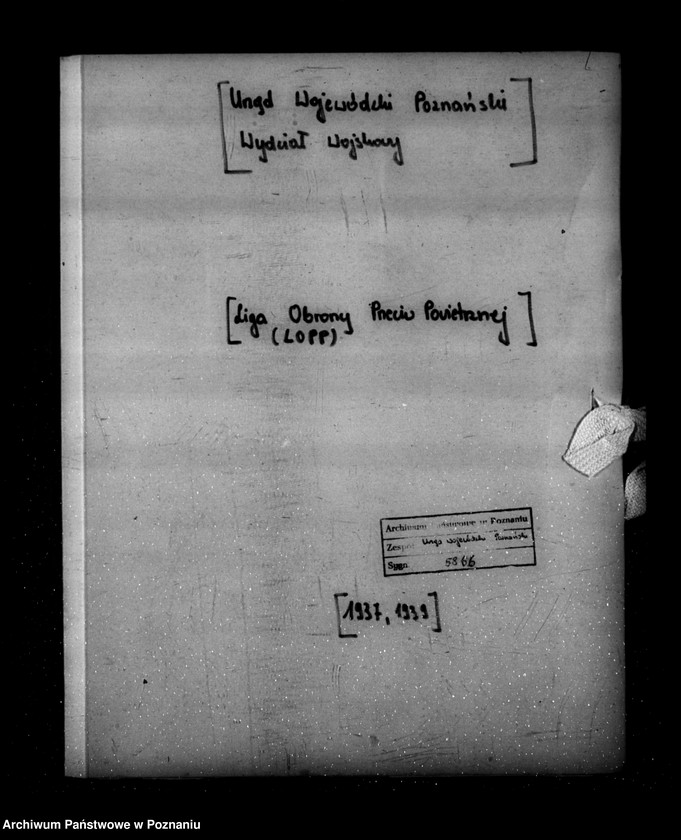 [Urząd Wojewódzki Poznański
Wydział Wojskowy]
[Liga Obrony Przeciw Powietrznej]
(LOPP)
Archiwum Państwowe w Poznaniu
Zespół Urząd Wojewódzki Poznański
Sygn. 5866
[1937, 1939]
Archiwum Państwowe w Poznaniu